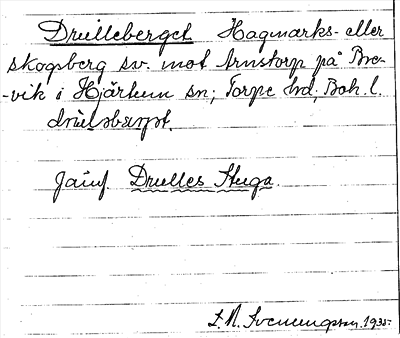 Drulleberget Hagmarks- eller
skogsberg sv. mot Arnstorp på Bre-
-vik i Hjärtum sn; Torpe hd; Boh. l.
Jämf. Drulles Stuga.
S. N. Svenungsson. 1935.